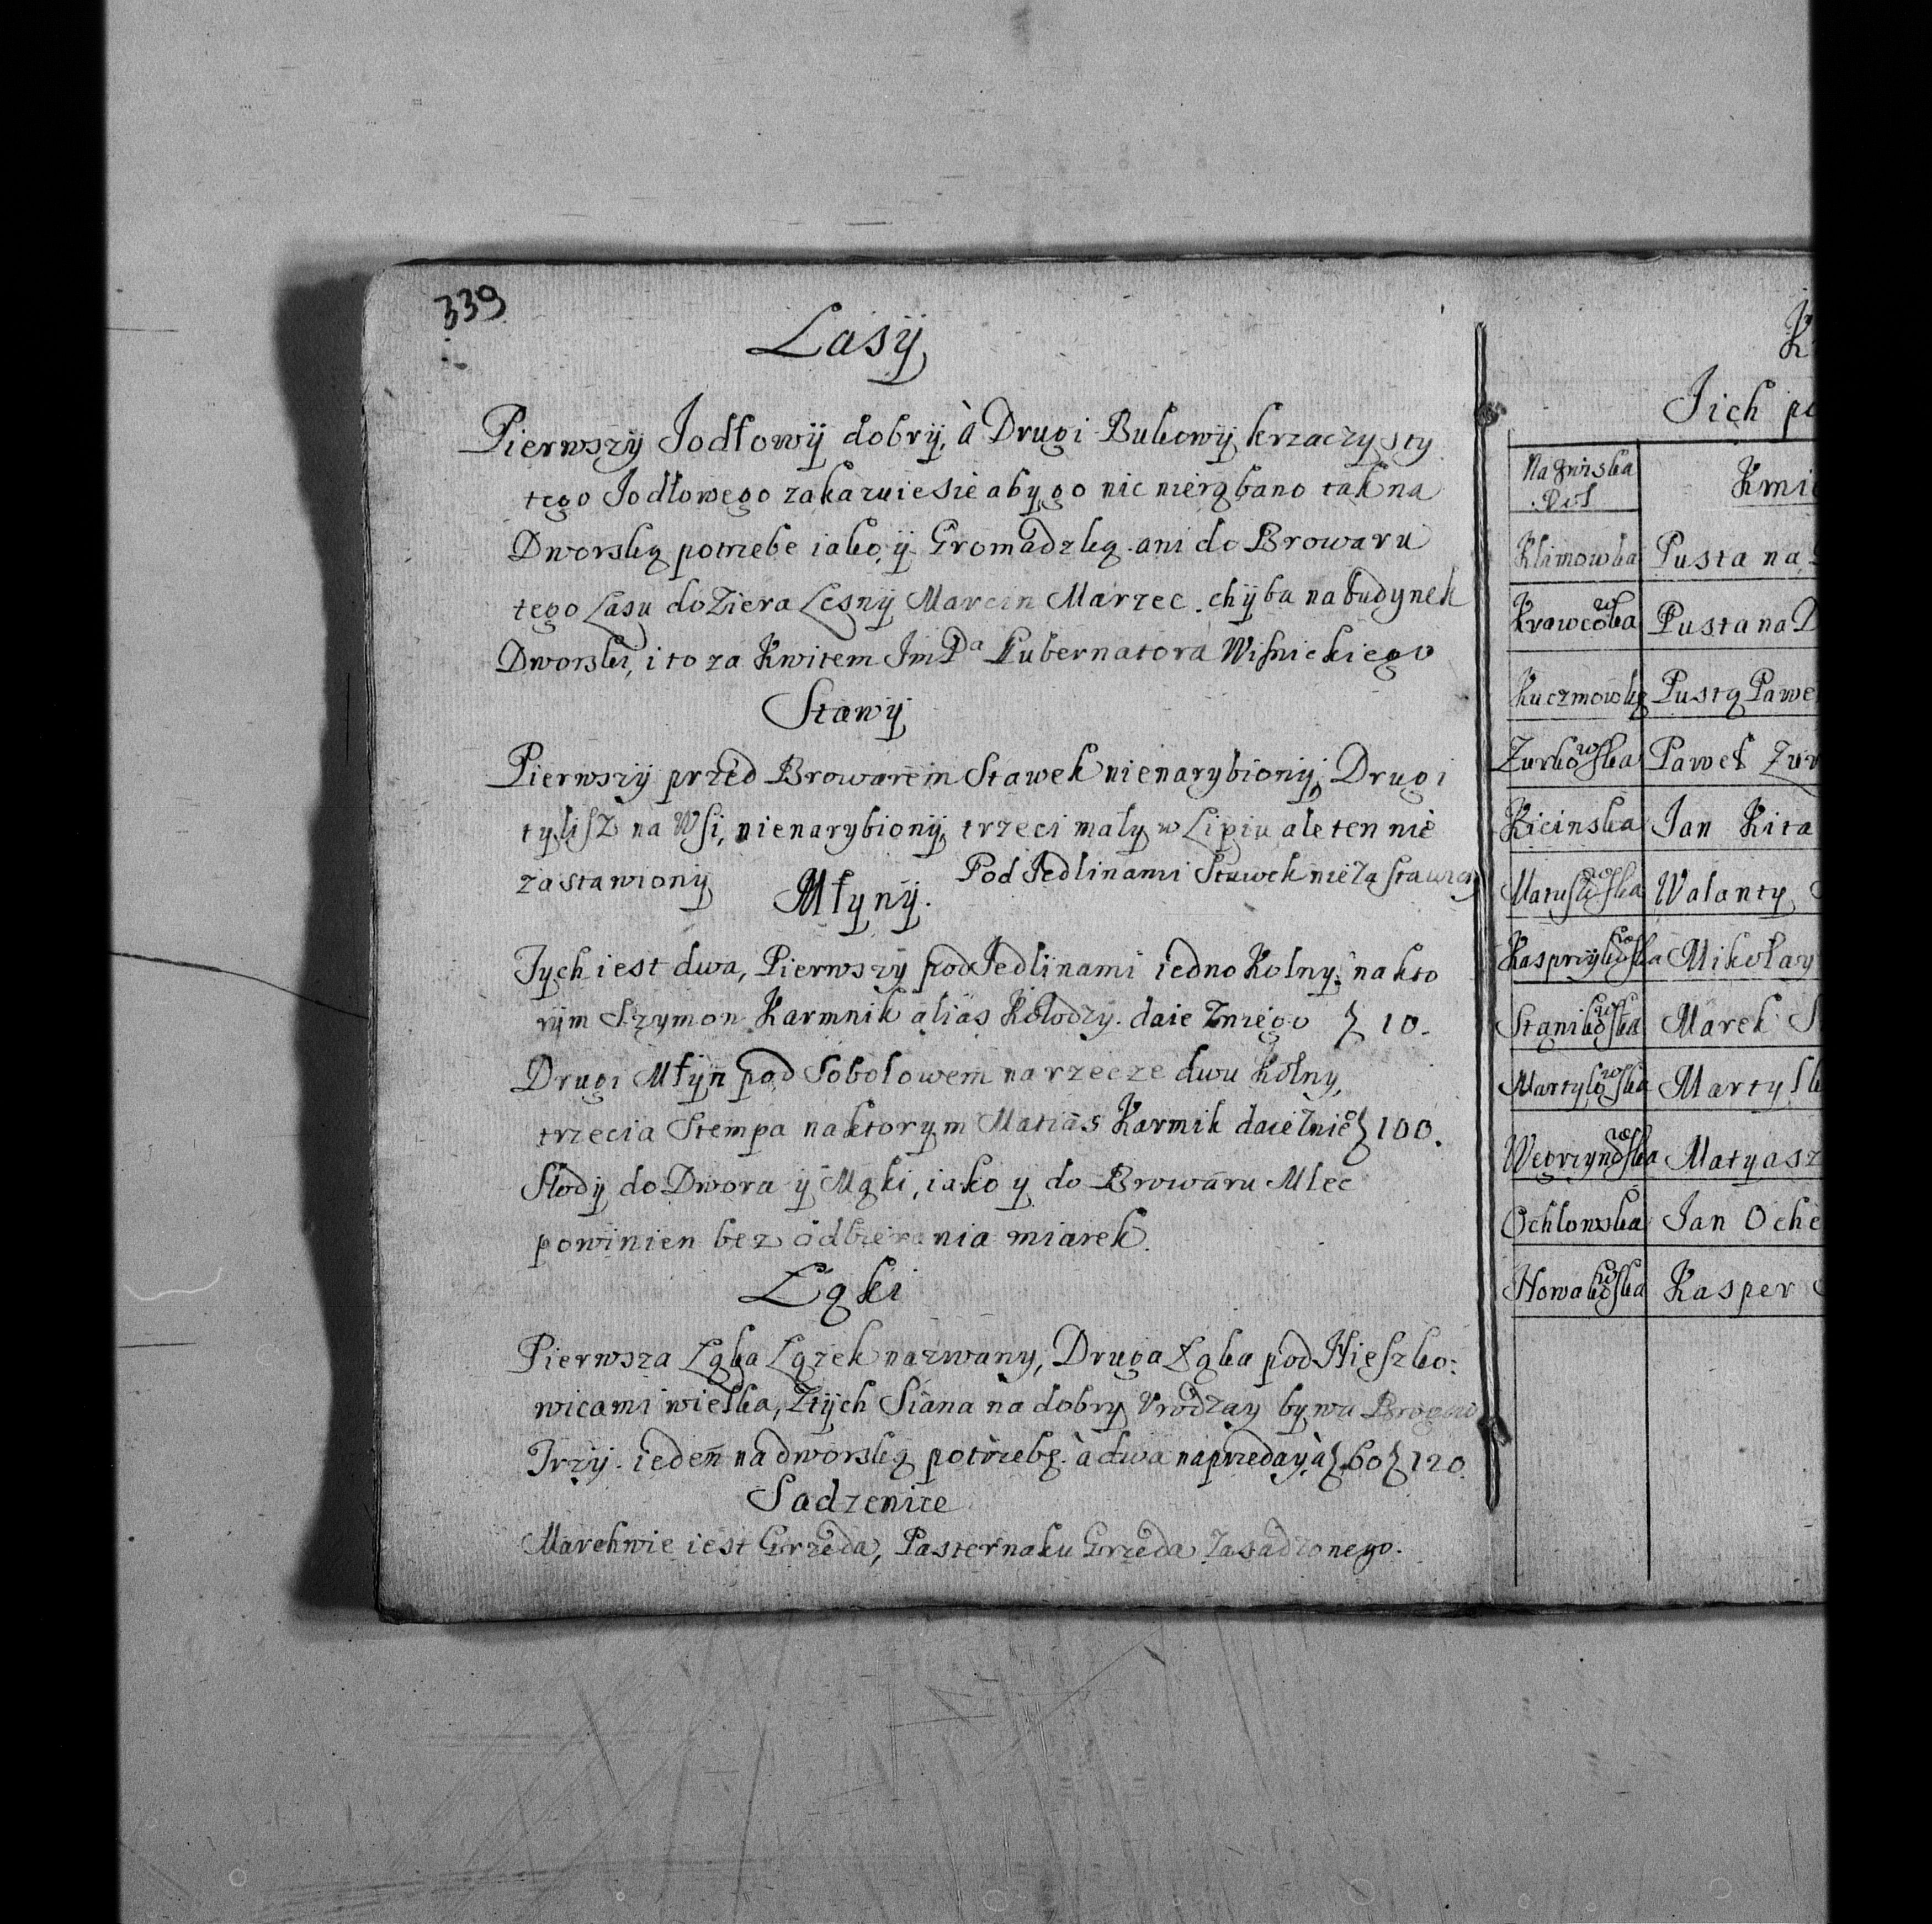 339
Lasÿ
Pierwszÿ Jodłowÿ dobrÿ, à Drugi Bukowÿ krzaczysty
tego Jodłowego zakazuie sie aby go nic nierąbano tak na
Dworską potrzebe iako ÿ Gromadzką. ani do Browaru
tego Lasu doziera Lesnÿ Marcin Marzec. chÿba na budynek
Dworski, i to za Kwitem ImPa Gubernatora Wisnickiego
Stawÿ
Pierwszÿ przed Browarem Stawek nienarybionÿ, Drugi
tylisz na Wsi, nienarybionÿ, trzeci maly w Lipiu ale ten nie
zastawionÿ Pod Jedlinami Stawek nie za stawiony
Młynÿ.
Tych iest dwa, Pierwszy pod Jedlinami iedno Kolny. na kto
rÿm Szymon Karmnik aliàs Kołodzy. daie zniego } 10.
Drugi Młÿn pod Sobolowem na rzecze dwu Kolny,
trzecia Stempa na ktorym Matias Karmik daie znie° } 100.
Słodÿ do Dwora ÿ Mąki, iako y do Browaru Mlec
powinien bez odbierania miarek.
Łąki
Pierwsza Łąka Łązek nazwany, Druga Łąka pod Nieszko:
wicami wielka, Ztÿch Siana na dobry Vrodzay bywa Brogow
Trzÿ. ieden na dworską potrzebę. à dwa naprzedaÿ à } 60 } 120.
Sadzenice
Marchwie iest Grzeda, Pasternaku Grzeda Zasadzonego.
K
Jich po
Nazwiska
Rol
Kmi
Klimowska Pusta na
Krawcowska Pusta na D
Kuczmowską Pustą Pawe
Zurkowska Paweł Zur
Kicinska Jan Kita
Matuszowska Walanty
Kasprzykowska Mikołay
Stanikowska Marek S
Martykowska Martyk
Wegrzynowska Matyasz
Ochlowska Jan Oche
Nowakowska Kasper